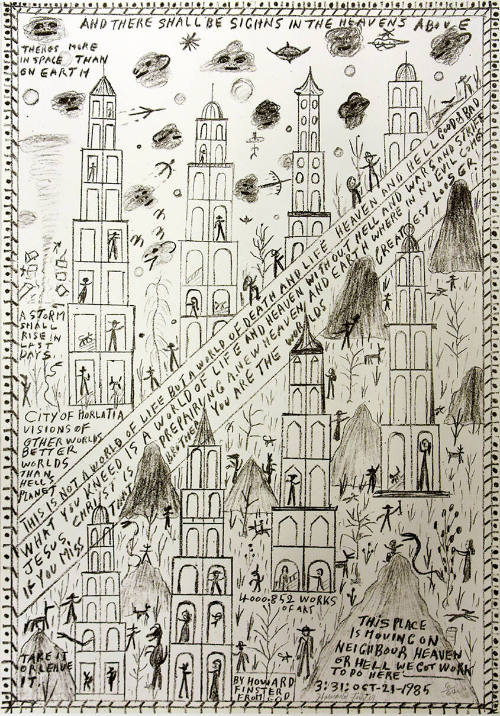 AND THERE SHALL BE SIGHNS IN THE HEAVENS ABOVE
THERES MORE
IN SPACE THAN
ON EARTH
THIS IS NOT A WORLD OF LIFE BUT A WORLD OF DEATH AND LIFE HEAVEN AND HELL GOOD & BAD
WHAT YOU KNEED IS A WORLD OF LIFE AND HEAVEN WITHOUT HELL AND WARS AND STRIFE
JESUS CHRIST IS PREPAIRYING A NEW HEAVEN, AND EARTH WHERE IN NO EVIL COME
IF YOU MISS BROTHER YOU ARE THE WORLDS, GREATEST LOOSER
A STORM
SHALL
RISE IN
LAST
DAYS.
CITY OF HORLATIA
VISIONS OF
OTHER WORLDS
BETTER
WORLDS
THAN
HELLS
PLANET
4000.852 WORKS
OF ART
THIS PLACE
IS MOVING ON
NEIGHBOUR HEAVEN
OR HELL WE GOT WORK
TO DO HERE
3:31: OCT-21-1985
TAKE IT
OR LEAVE
IT.
BY HOWARD
FINSTER
FROM GOD